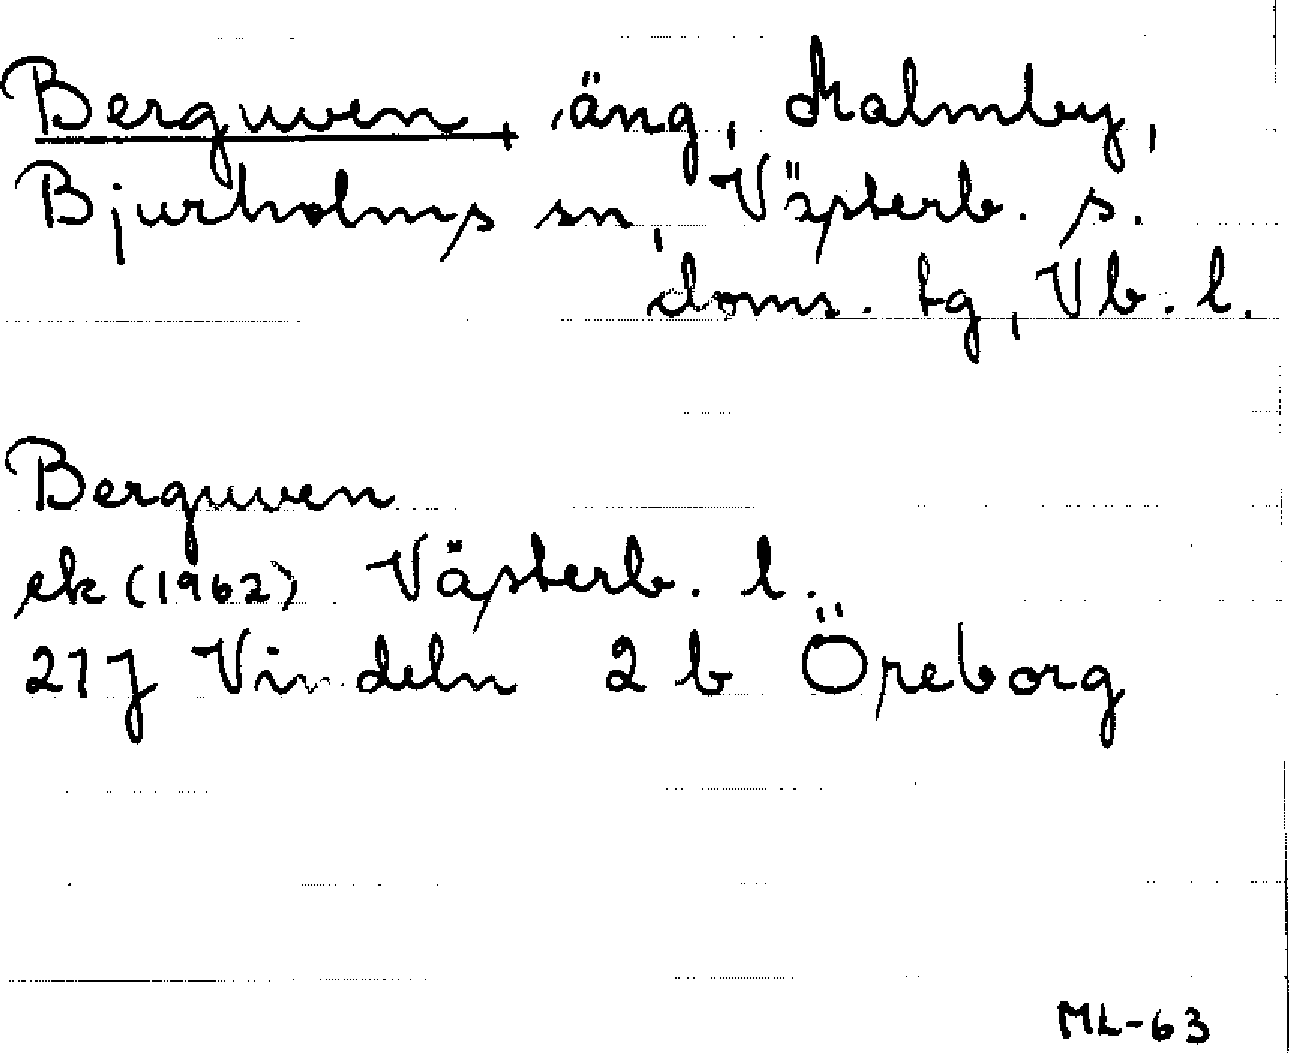 Berguven, äng, Malmby,
Bjurholms sn, Västerb. s.
doms. tg, Vb. l.
Berguven
ek (1962) Västerb. l.
21J Vindeln 2 b Öreborg
ML-63